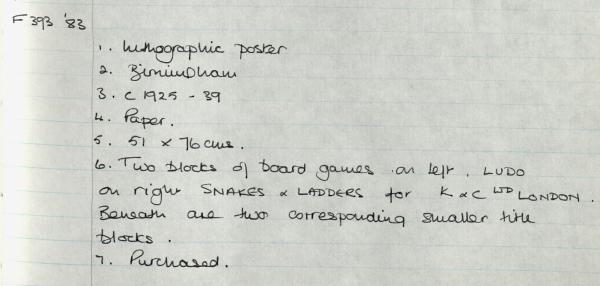 F393 '83
1. Lithographic poster
2. Birmingham
3. c 1925 - 39
4. Paper.
5. 51 x 76 cms.
6. Two blocks of board games on left, LUDO
on right SNAKES & LADDERS for K & C LTD LONDON.
Beneath are two corresponding smaller title
blocks.
7. Purchased.